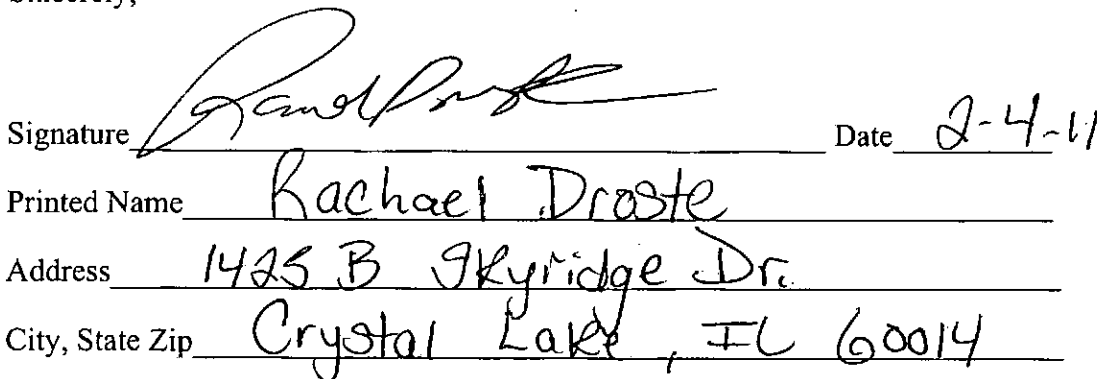 Sincerely,
Signature Date 2-4-11
Printed Name Rachael Droste
Address 1425 B Skyridge Dr.
City, State Zip Crystal Lake, IL 60014